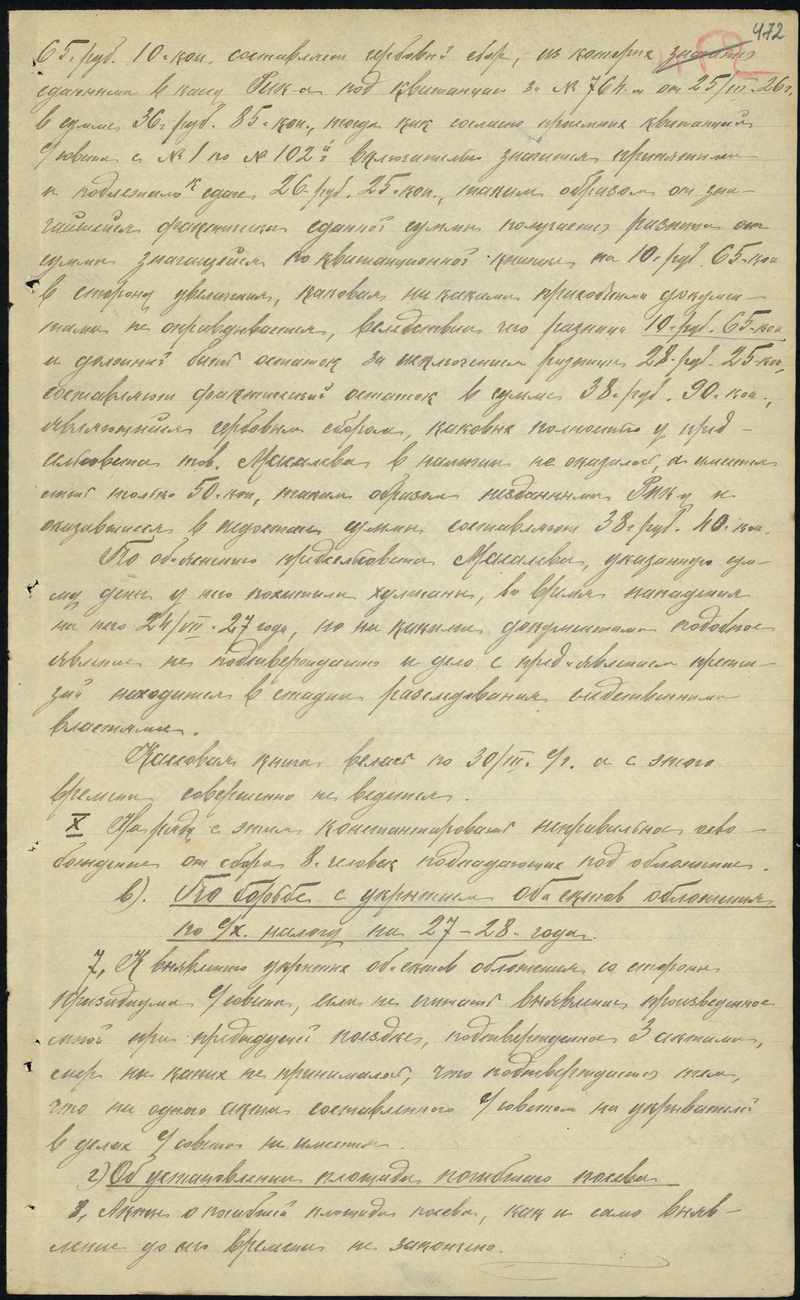 472
65. руб. 10. коп. составляют гербовый сбор, из которых значатся
сданными в кассу Рик-а под квитанцию за № 764. от 25/III-26 г.
в сумме 36. руб. 85. коп., тогда как согласно приемных квитанций
с/совета с № 1 по № 102й включительно значится принятыми
и подлежало к сдаче 26. руб. 25. коп., таким образом от зна-
чившейся фактически сданной суммы получается разница от
суммы значащейся по квитанционной книжке на 10. руб. 65. коп
в сторону увеличения, каковая никакими приходными докумен-
тами не оправдывается, вследствии чего разница 10. руб. 65. коп
и должный быть остаток за исключением разницы 28. руб. 25 коп,
составляют фактический остаток в сумме 38. руб. 90. коп.,
являющийся гербовым сбором, каковых полностью у пред-
сельсовета тов. в наличии не оказалось, а имеется
только 50. коп, таким образом несданными Рик-у и
оказавшиеся в недостаче суммы составляют 38. руб. 40. коп.
По объяснению предсельсовета указанную сум-
му денег у него похитили хулиганы, во время нападения
на него 24/VII-27 года, но никакими документами подобное
явление не подтверждено и дело с предъявлением претен-
зий находится в стадии расследования следственными
властями.
Кассовая книга велась по 30/III с/г. а с этого
времени совершенно не ведется.
X Наряду с этим констатировать неправильное осво-
бождение от сбора 8. человек подпадающих под обложение.
в). По борьбе с укрытием объектов обложения
по с/х. налогу на 27-28. года.
7, К выявлению укрытых объектов обложения со стороны
президиума с/совета, если не считать выявление произведенное
мной при предыдущей поездке, подтвержденное 3 актами,
мер ни каких не принималось, что подтверждается тем,
что ни одного акта составленного с/советом на укрывателей
в делах с/совета не имеется.
г) Об установлении площади погибшего посева
8, Акты о погибшей площади посева, как и само выяв-
ление до сего времени не закончено.